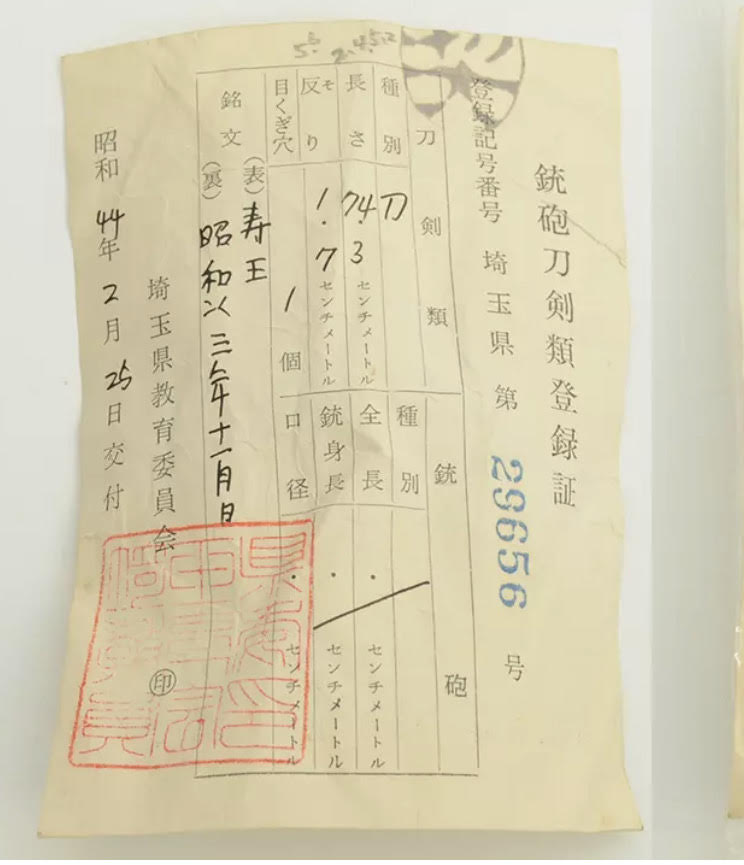 銃砲刀剣類登録証
登録記号番号 埼玉県 第 29656 号
刀剣類 銃砲
種別 刀 種別
長さ 74.3 センチメートル 全長 . センチメートル
反り ソ 1.7 センチメートル 銃身長 . センチメートル
目くぎ穴 1 個 口径 . センチメートル
銘文 (表) 寿王
(裏) 昭和 三年十一月日
埼玉県教育委員会 印
昭和44年2月25日交付